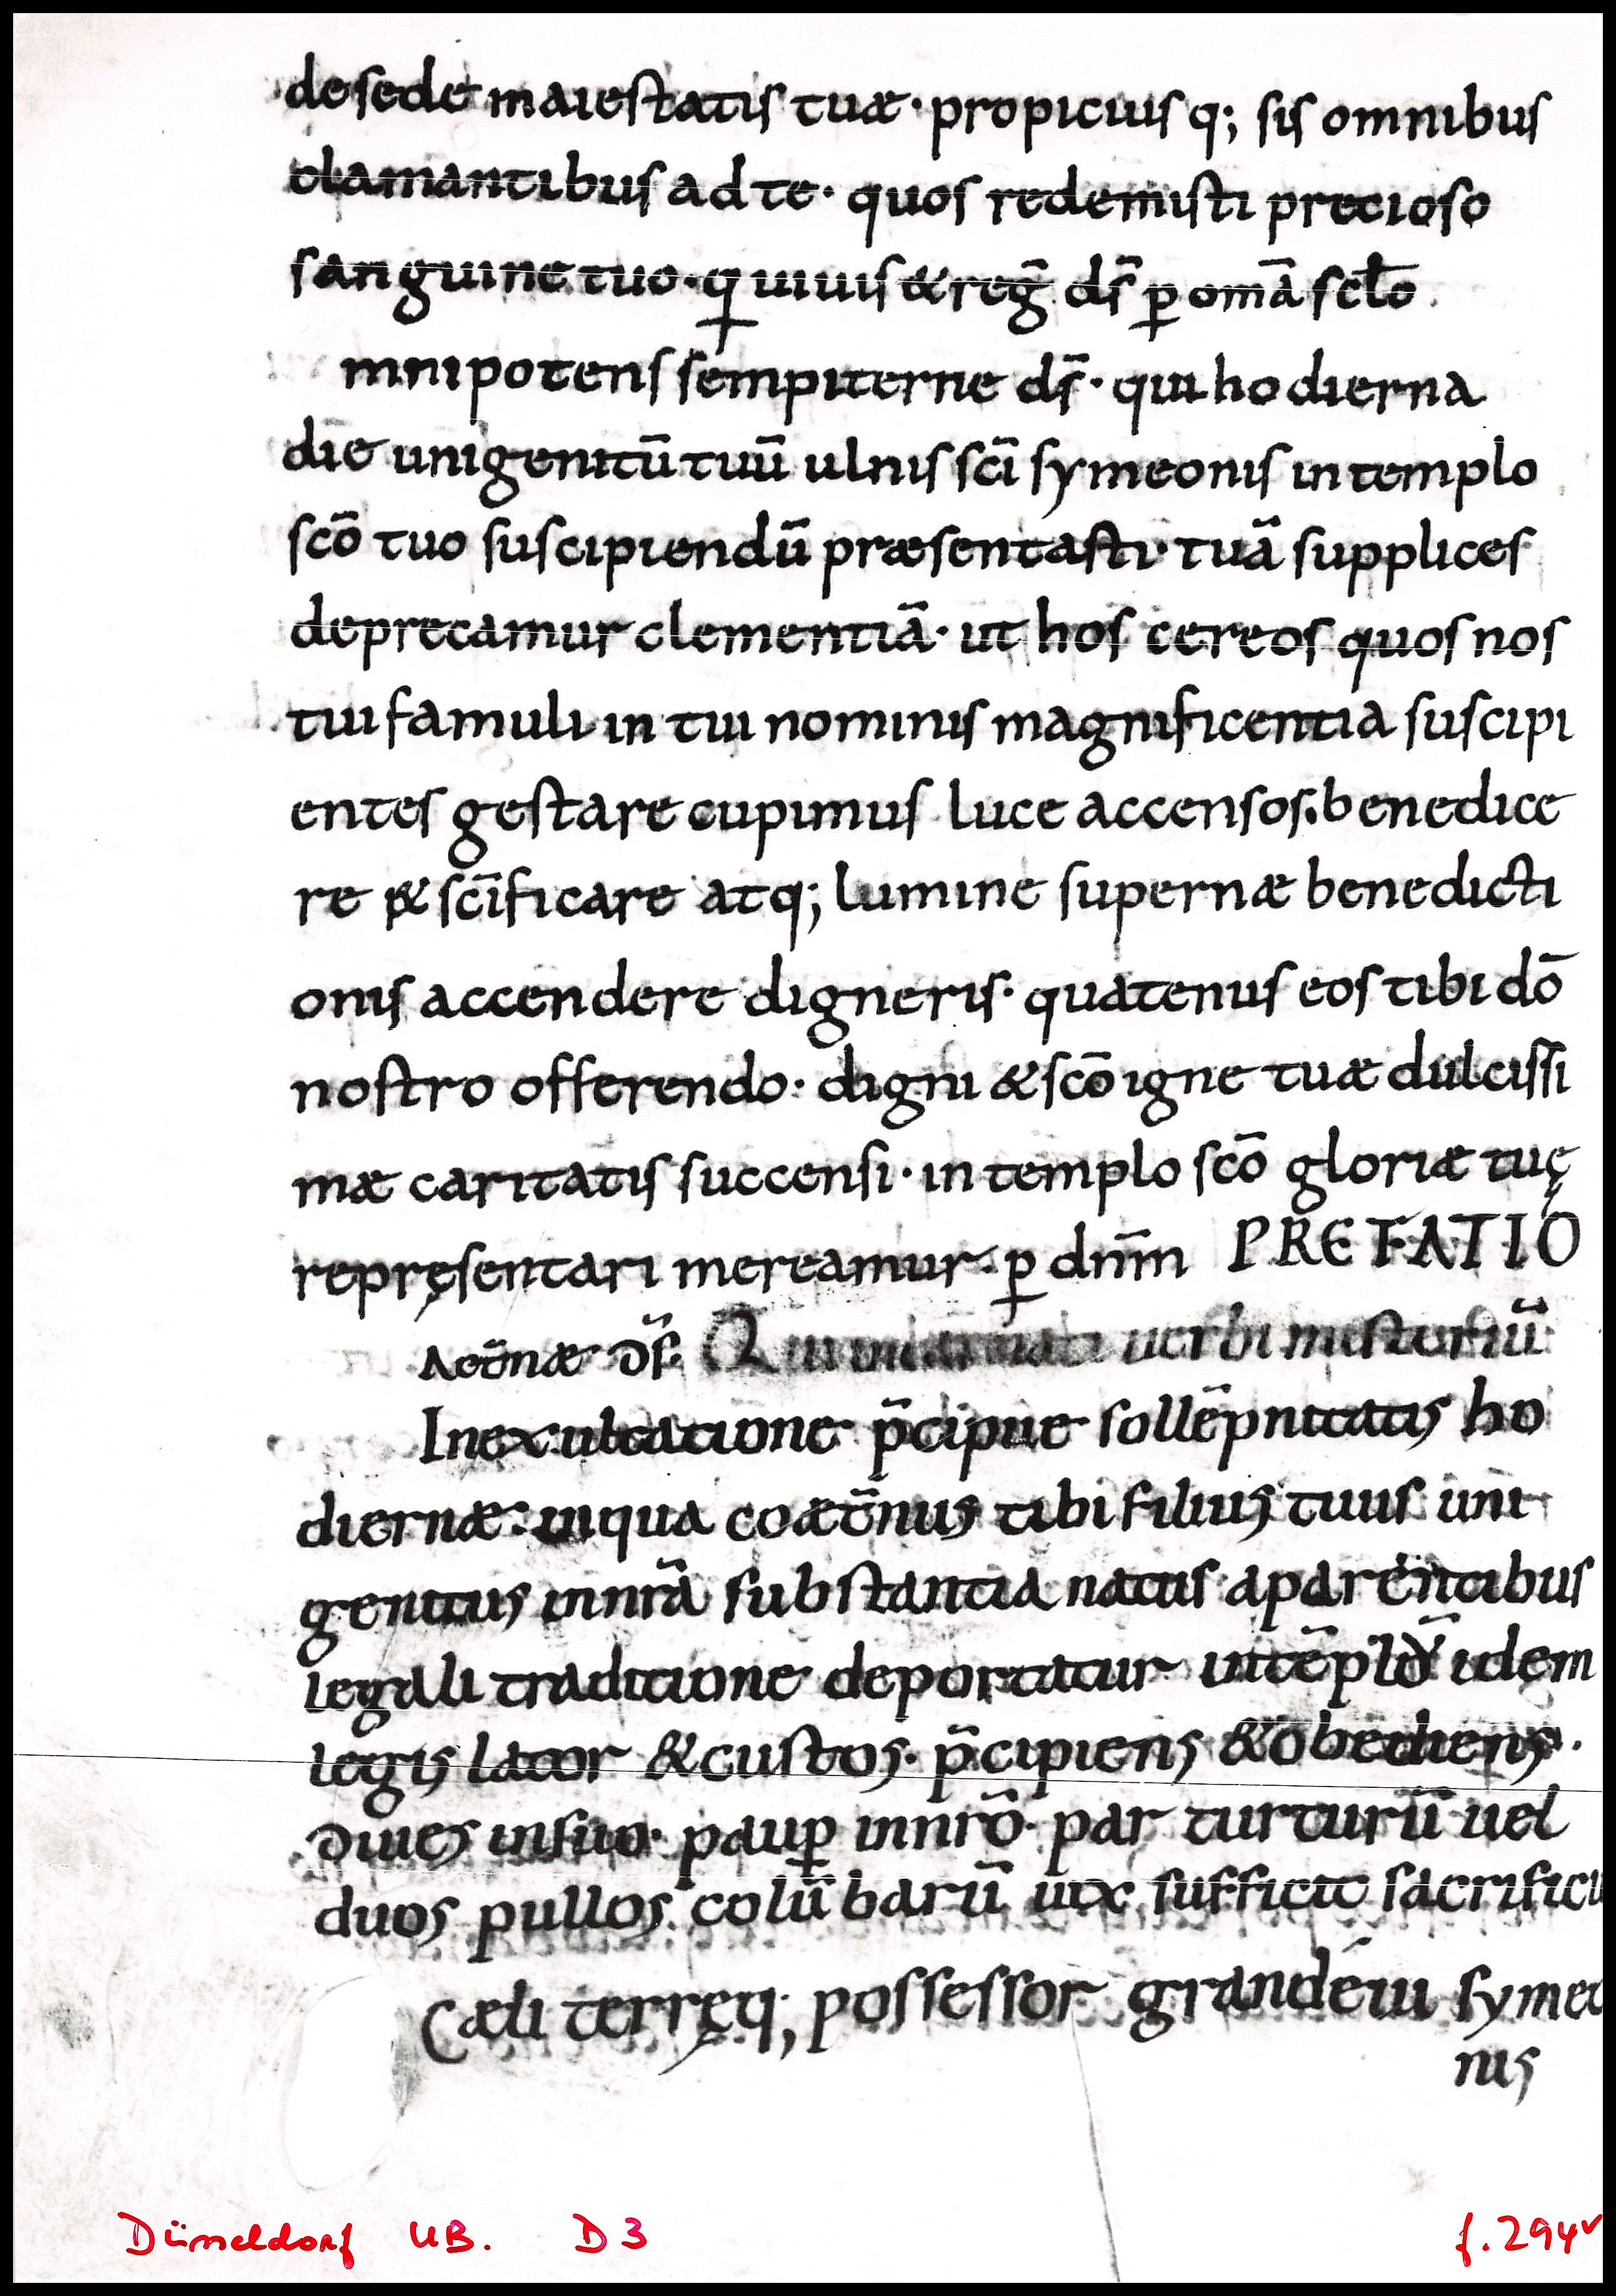 de sede maiestatis tuæ· propiciusq; sis omnibus
clamantibus ad te· quos redemisti precioso
sanguine tuo· q uiuis & reg̅ ds̅ p omā sclo
mnipotens sempiterne ds̅· qui hodierna
die unigenitū tuū ulnis sc̅i symeonis in templo
sc̅o tuo suscipiendū præsentasti· tuā supplices
deprecamur clementiā· ut hos cereos quos nos
tui famuli in tui nominis magnificentia suscipi
entes gestare cupimus luce accensos· benedice
re & sc̅ificare atq; lumine supernæ benedicti
onis accendere digneris· quatenus eos tibi dō
nostro offerendo· digni & sc̅o igne tuæ dulcissi
mæ caritatis succensi· in templo sc̅o gloriæ tuę
repręsentari mereamur· p dn̅m PREFATIO
Aet̅næ ds̅· Qui uerbi misteriū
In exultatione p̅cipue sollēpnitatis ho
diernæ· in qua coæt̅nus tibi filius tuus uni
genitus in nr̅a substantia natus a parentibus
legali traditione deportatur in tēplū idem
legis lator & custos· p̅cipiens & obediens·
diues in suo· paup in nr̅o· par turturū uel
duos pullos colūbarū uix sufficit sacrificii
Cæli terręq; possessor grandęui symeo
nis
Düsseldorf UB. D 3 f. 294v